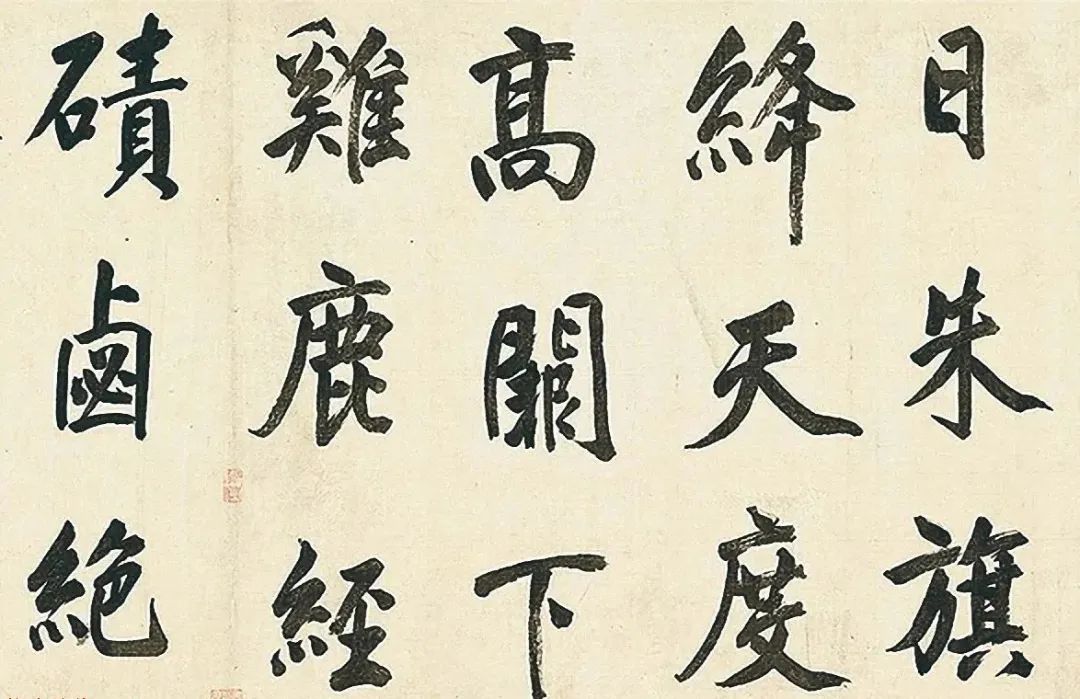 日朱旗
絳天度
高闕下
雞鹿經
磧鹵絕